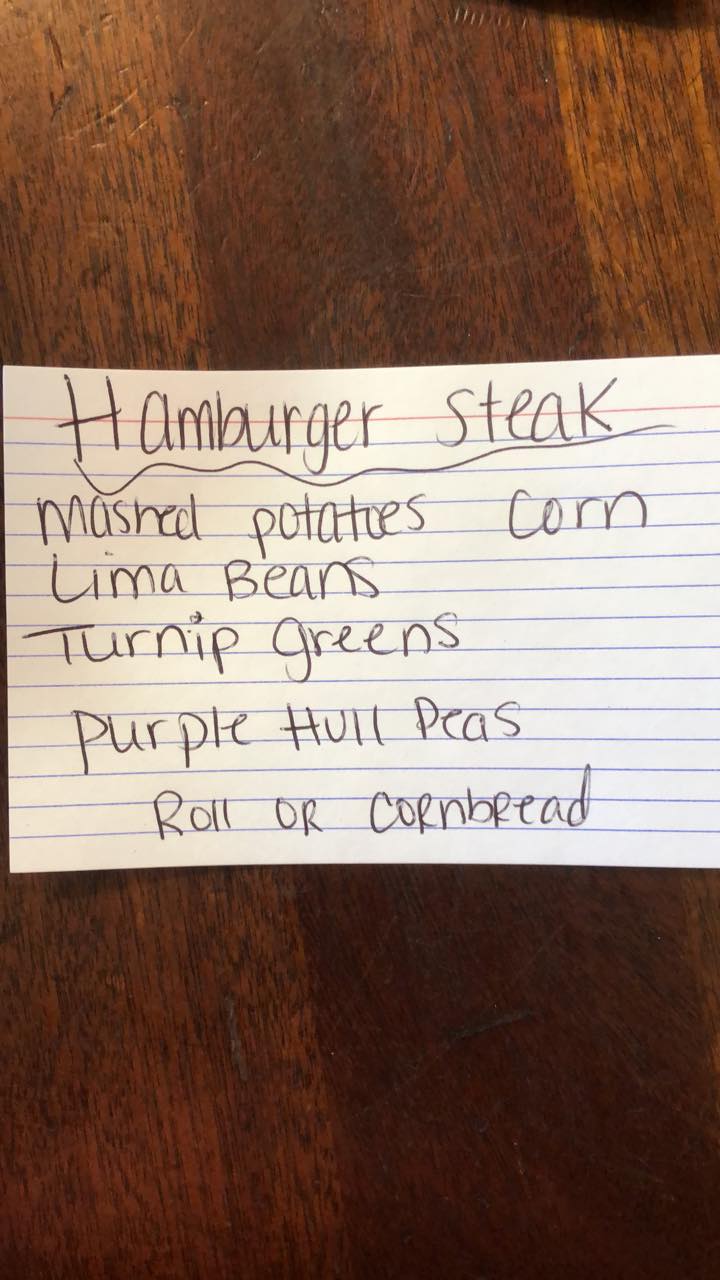 Hamburger Steak
Mashed potatoes Corn
Lima Beans
Turnip greens
Purple Hull Peas
Roll OR Cornbread